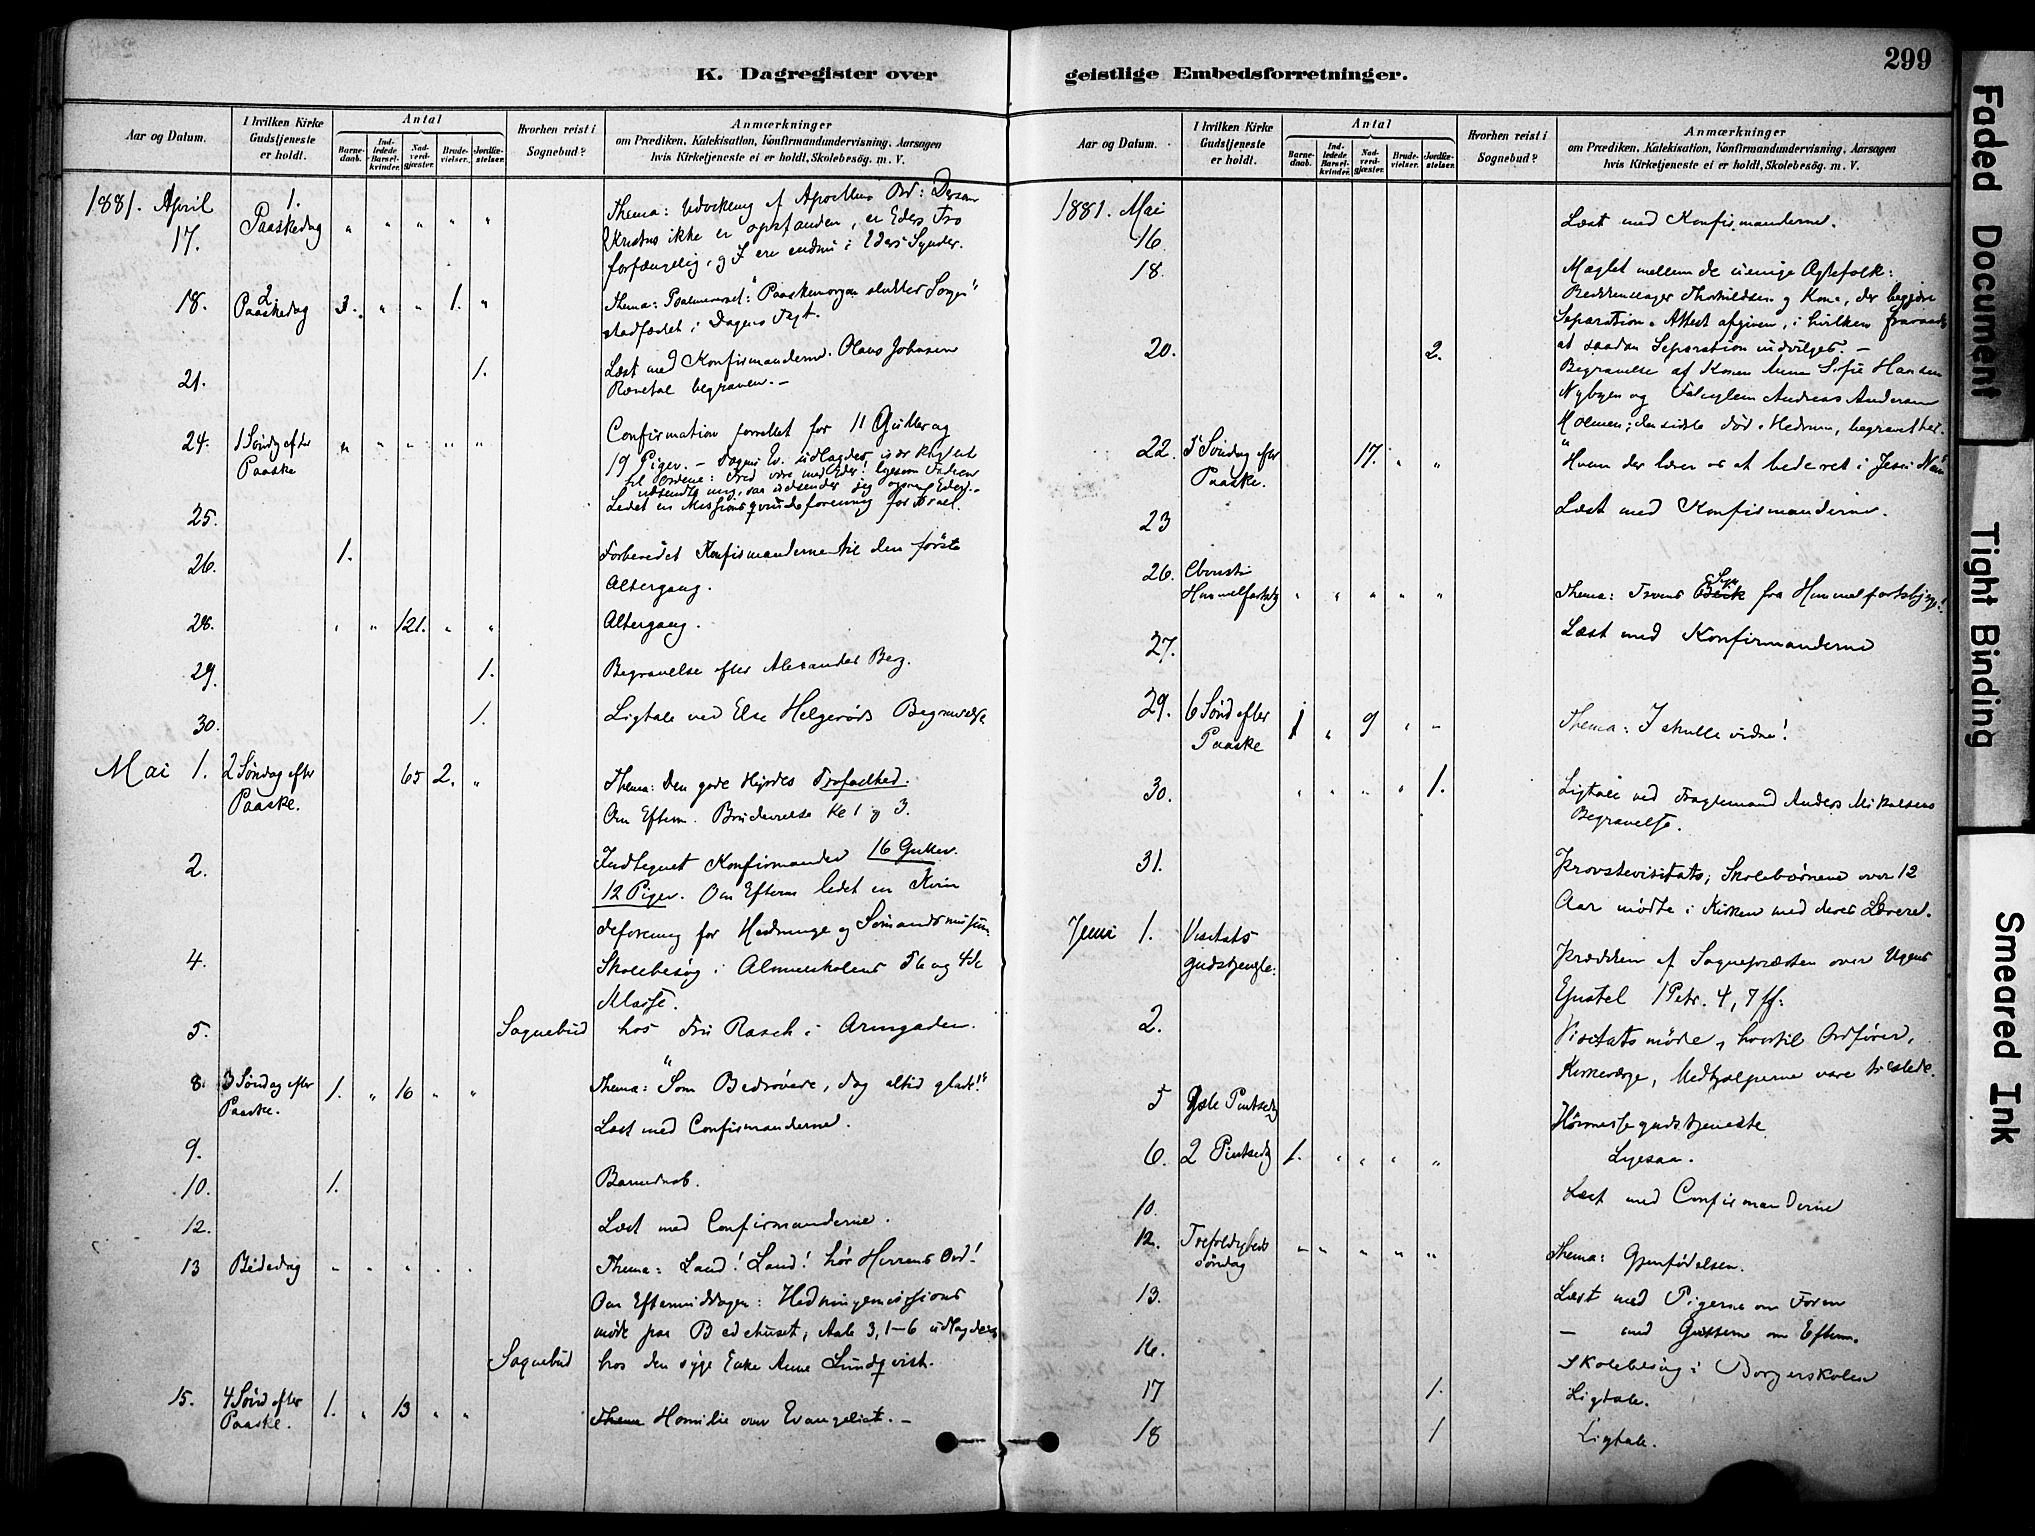 K. Dagregister over geistlige Embedsforretninger.
299
Aar og Datum.
I hvilken Kirke Gudstjeneste er holdt.
Antal
Barnedaab.
Indledede Barselkvinder.
Nadverdgjæster.
Brudevielser.
Jordfæstelser.
Hvorhen reist i Sognebud?
Anmærkninger
om Prædiken, Katekisation, Konfirmandundervisning, Aarsagen
hvis Kirketjeneste ei er holdt, Skolebesög. m. V.
1881. April 17. 1. Paaskedag " " " " " Thema: Udvikling af Apostlens Ord: Dersom
Kristus ikke er opstanden, er Eders Tro
forfængelig, og I ere endnu i Eders Synder.
18. 2 Paaskedag 3. " " 1. " Thema: Psalmeverset: "Paaskemorgen slukker Sorgen"
stadfæstet i Dagens Text.
21. 1. Læst med Konfirmanderne. Olaus Johnsen
begraven. –
24. 1 Søndag efter Paaske " " " " " Confirmation forrettet for 11 Gutter og
19 Piger. – Dagens Ev. udlagdes især knyttet
til Ordene: Fred være med Eder! ligesom Faderen
udsendte mig, saa udsender jeg ogsaa Eder. –
25. Ledet en Missionsqvindeforening for Israel.
26. 1. Forberedet Konfirmanderne til den første
Altergang.
28. " " 121. " " Altergang.
29. 1. Begravelse efter Alexander Berg.
30. 1. Ligtale ved Else Helgerøds Begravelse
Mai 1. 2 Søndag efter Paaske. 65 2. " Thema: Den gode Hyrdes Trofasthed.
Om Efterm. Brudevielse Kl 1 og 3.
2. Indtegnet Konfirmander 16 Gutter.
12 Piger. Om Efterm ledet en Kvin
deforening for Hedninge og Sømandsmission.
4. Skolebesøg i Almueskolens 5te og 4de
Klasse.
5. Sognebud hos Fru Rasch i Armgaden.
8. 3 Søndag efter Paaske. 1. " 16 " " Thema: "Som Bedrøvede, dog altid glade!"
9. Læst med Confirmanderne.
10. 1. Barnedaab.
12. Læst med Confirmanderne.
13 Bededag " " " " " Thema: Land! Land! hør Herrens Ord!
Om Eftermiddagen: Hedningemissions
møde paa Bedehuset, 3, 1–6 udlagdes
Sognebud hos den syge Enke Anne Lundqvist.
15. 4 Sønd efter Paaske. 1. " 13 " " Thema Homilie over Evangeliet. –
Aar og Datum.
I hvilken Kirke Gudstjeneste er holdt.
Antal
Barnedaab.
Indledede Barselkvinder.
Nadverdgjæster.
Brudevielser.
Jordfæstelser.
Hvorhen reist i Sognebud?
Anmærkninger
om Prædiken, Katekisation, Konfirmandundervisning, Aarsagen
hvis Kirketjeneste ei er holdt, Skolebesög. m. V.
1881. Mai 16. Læst med Konfirmanderne.
18. Mæglet mellem de uenige Ægtefolk:
Thorkildsen og Kone, der begjære
Separation. Attest afgiven, i hvilken fraraades
at saadan Separation indvilges. –
20. 2. Begravelse af Konen Anne Sofie Hansen
Nybyen og Andreas Andersen
Holmen; den sidste død i Hedrum, begravet her.
22. 5 Søndag efter Paaske. 17. " " "Hvem der lærer os at bede ret i Jesu Navn"
23 Læst med Konfirmanderne.
26. Christi Himmelfartsdag " " " " " Thema: Troens Syn fra Himmelfartsbjerget!
27. Læst med Konfirmanderne
29. 6 Sønd efter Paaske 1 " 9 " " Thema: I skulle vidne!
30. " " " " 1. Ligtale ved Fragtemand Anders Mikalsens
Begravelse.
31. Provstevisitats; Skolebørnene over 12
Aar mødte i Kirken med deres Lærere.
Juni 1. Visitats gudstjeneste: Prædiken af Sognepræsten over Ugens
Epistel 1 Petr. 4, 7 ff:
2. Visitatsmøde, hvortil Ordfører,
Kirkeværge, Medhjælperne vare tilstede.
5 1ste Pintsedag Høimessegudstjeneste
6. 2 Pintsedag 1. " " " " Ligesaa.
10. Læst med Confirmanderne
12. Trefoldigheds søndag " " " " " Thema: Gjenfødelsen.
13. Læst med Pigerne om Form
– med Gutterne om Efterm.
16. Skolebesøg i Borgerskolen
17 1. Ligtale.
18 1 Ligtale.
Faded Document
Tight Binding
Smeared Ink